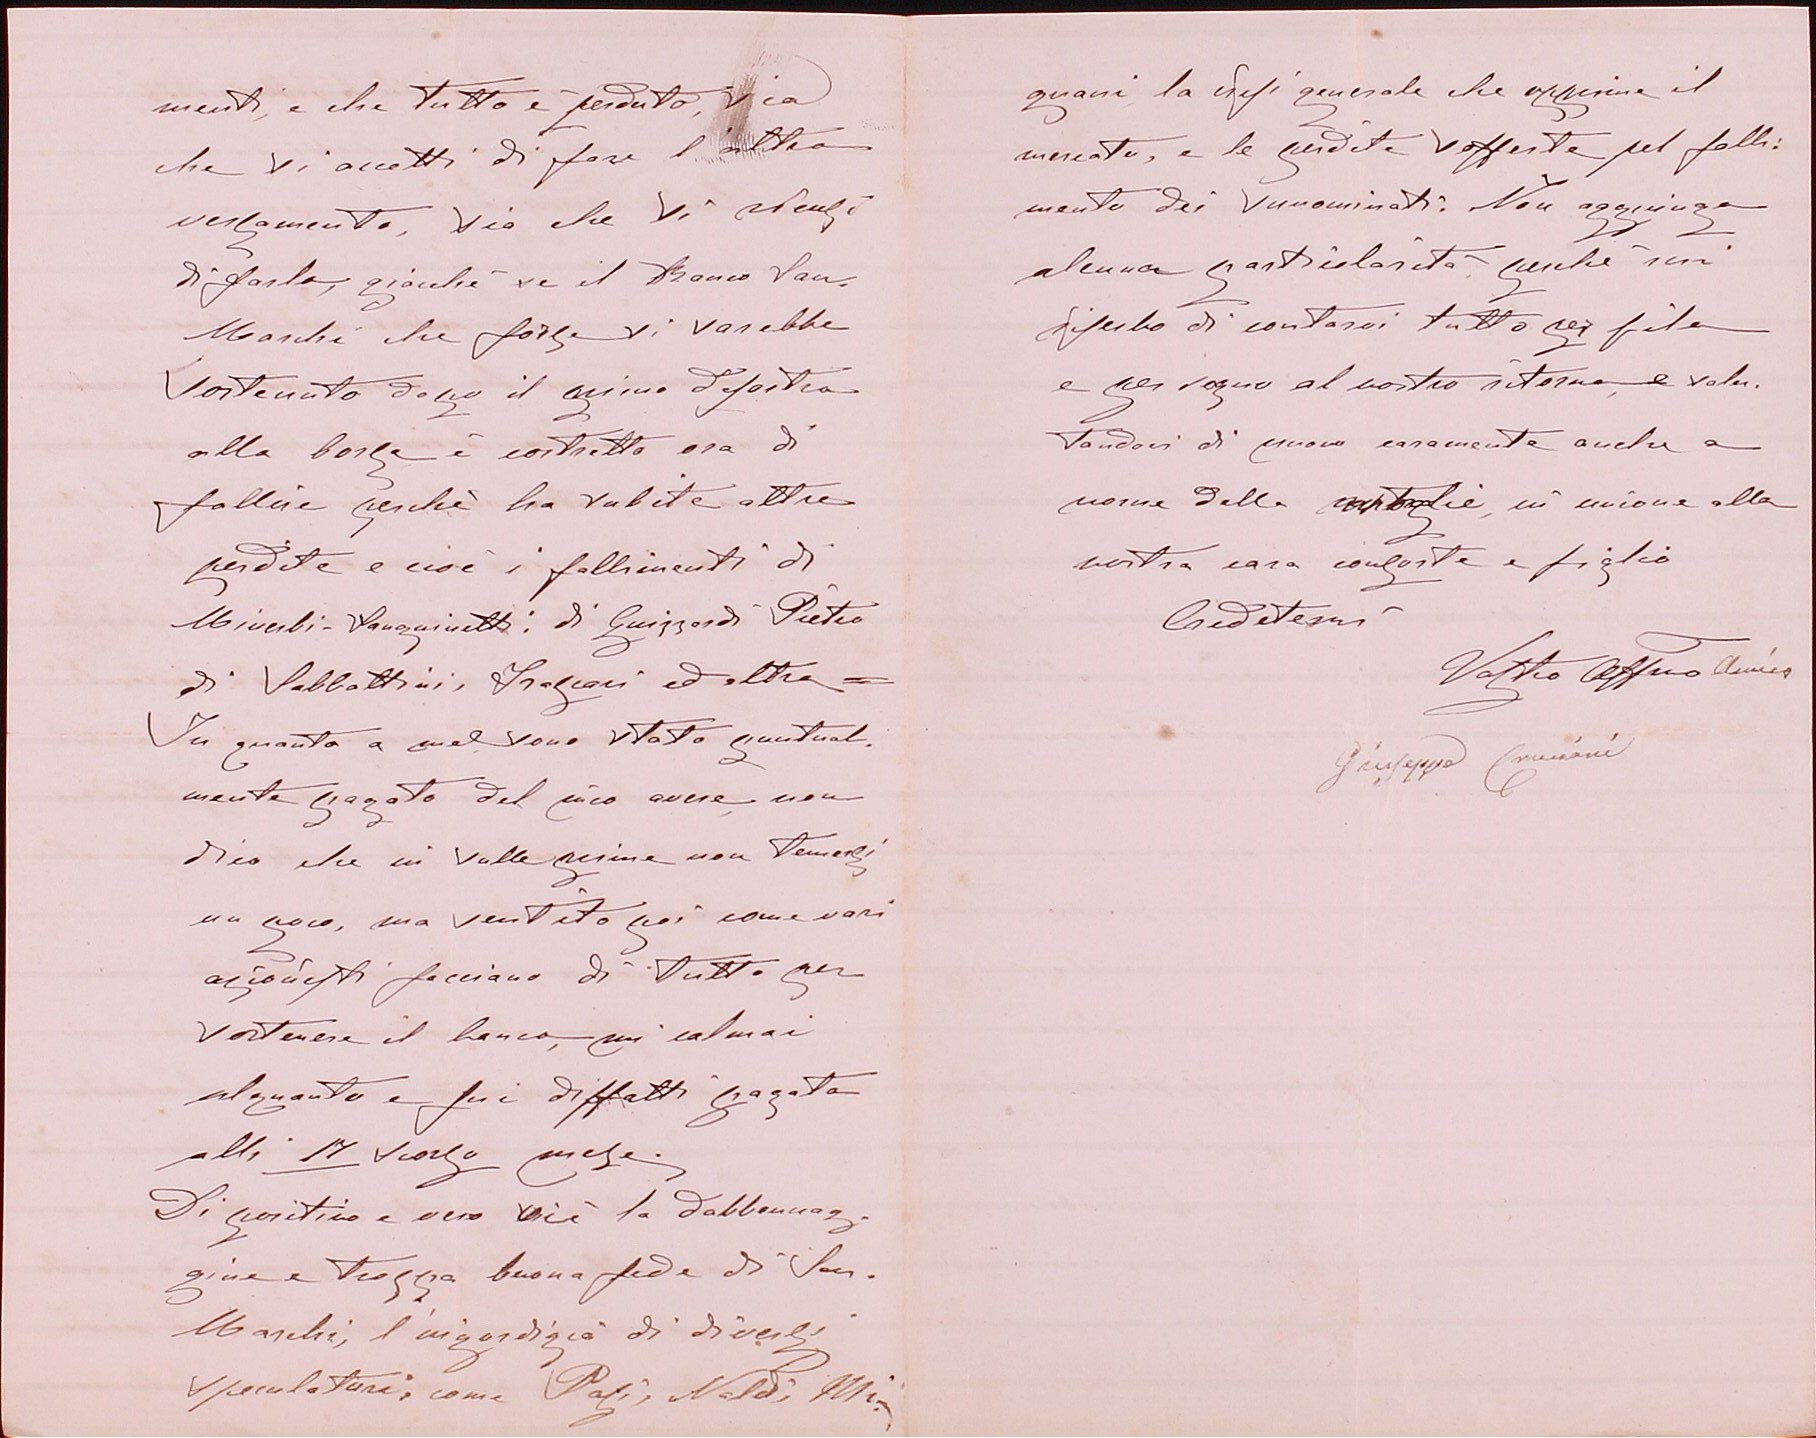 menti, e che tutto è perduto, sia
che vi accetti di fare l'altro
versamento, sia che vi ricusi
di farlo, giacchè se il Banco San-
Marchi che forse si sarebbe
sostenuto dopo il primo disastro
alla borsa è costretto ora di
fallire perchè ha subite altre
perdite e cioè i fallimenti di
Miverbi-Sanguinetti, di Guizzardi Pietro
di Sabbattini, ed altre =
In quanto a me sono stato puntual-
mente pagato del mio avere, non
dico che in sulle prime non temessi
un poco, ma sentito poi come vari
azionisti facciano di tutto per
sostenere il banco, mi calmai
alquanto e fui diffatti pagato
alli 17 scorso mese.
Di positivo e vero vi è la dabbennag-
gine e troppa buona fede di San-
Marchi, l'ingordigia di diversi
speculatori, come Pasi, Naldi, Mi-
quasi, la crisi generale che opprime il
mercato, e le perdite sofferte pel falli-
mento dei sunnominati. Non aggiungo
alcuna particolarità perchè mi
riserbo di contarvi tutto per filo
e per segno al vostro ritorno, e salu-
tandovi di nuovo caramente anche a
nome della moglie, in unione alla
vostra cara consorte e figlio
Credetemi
Vostro Affmo Amico
Giuseppe